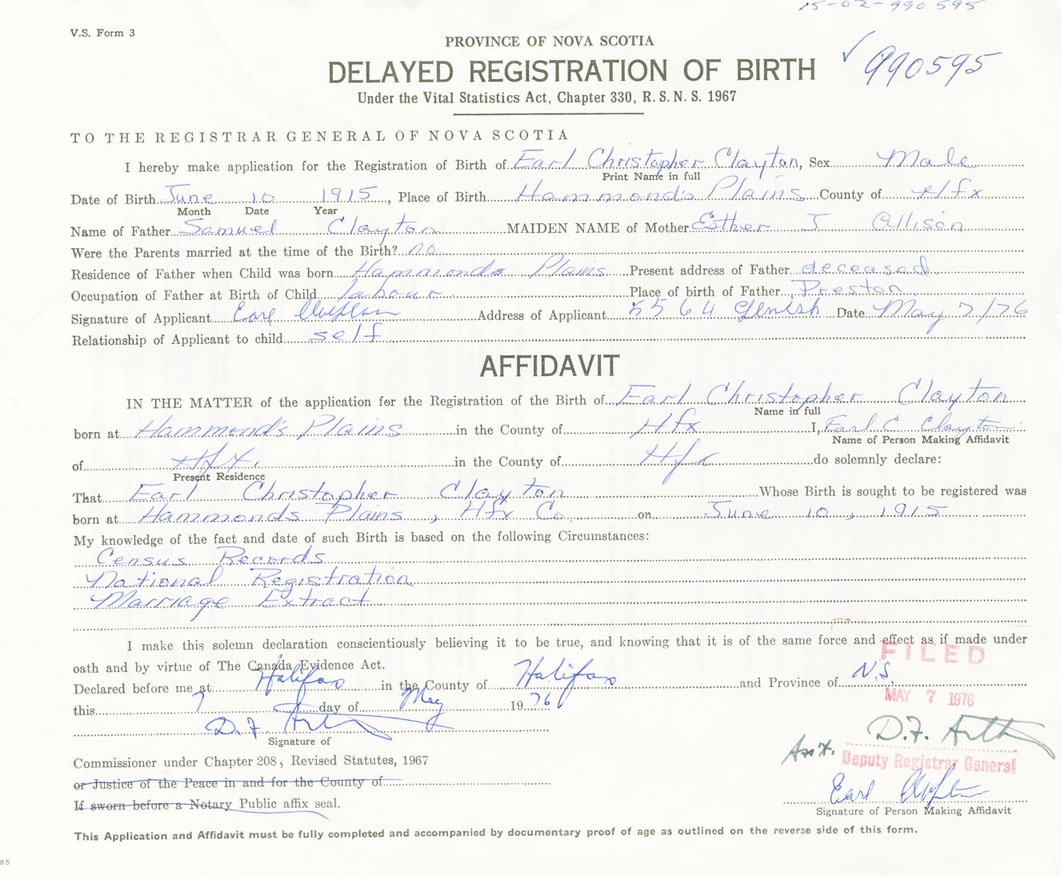 15-02-990595
V.S. Form 3
PROVINCE OF NOVA SCOTIA
DELAYED REGISTRATION OF BIRTH
✓ 990595
Under the Vital Statistics Act, Chapter 330, R.S.N.S. 1967
TO THE REGISTRAR GENERAL OF NOVA SCOTIA
I hereby make application for the Registration of Birth of Earl Christopher Clayton, Sex Male
Print Name in full
Date of Birth June 10 1915, Place of Birth Hammond's Plains County of Hfx
Month Date Year
Name of Father Samuel Clayton MAIDEN NAME of Mother Esther J Allison
Were the Parents married at the time of the Birth? no
Residence of Father when Child was born Hammonds Plains Present address of Father deceased
Occupation of Father at Birth of Child labour Place of birth of Father Preston
Signature of Applicant Earl Clayton Address of Applicant 5564 Date May 7/76
Relationship of Applicant to child self
AFFIDAVIT
IN THE MATTER of the application for the Registration of the Birth of Earl Christopher Clayton
Name in full
born at Hammond's Plains in the County of Hfx I, Earl C Clayton
Name of Person Making Affidavit
of Hfx. in the County of Hfx do solemnly declare:
Present Residence
That Earl Christopher Clayton Whose Birth is sought to be registered was
born at Hammonds Plains, Hfx Co. on June 10, 1915
My knowledge of the fact and date of such Birth is based on the following Circumstances:
Census Records
National Registration
Marriage Extract
I make this solemn declaration conscientiously believing it to be true, and knowing that it is of the same force and effect as if made under
oath and by virtue of The Canada Evidence Act.
FILED
Declared before me at Halifax in the County of Halifax and Province of N.S.
this 7 day of May 1976
MAY 7 1976
D.F. Arth
Signature of
D.F. Arth
Commissioner under Chapter 208, Revised Statutes, 1967
Asst. Deputy Registrar General
or Justice of the Peace in and for the County of
If sworn before a Notary Public affix seal.
Earl Clayton
Signature of Person Making Affidavit
This Application and Affidavit must be fully completed and accompanied by documentary proof of age as outlined on the reverse side of this form.
85